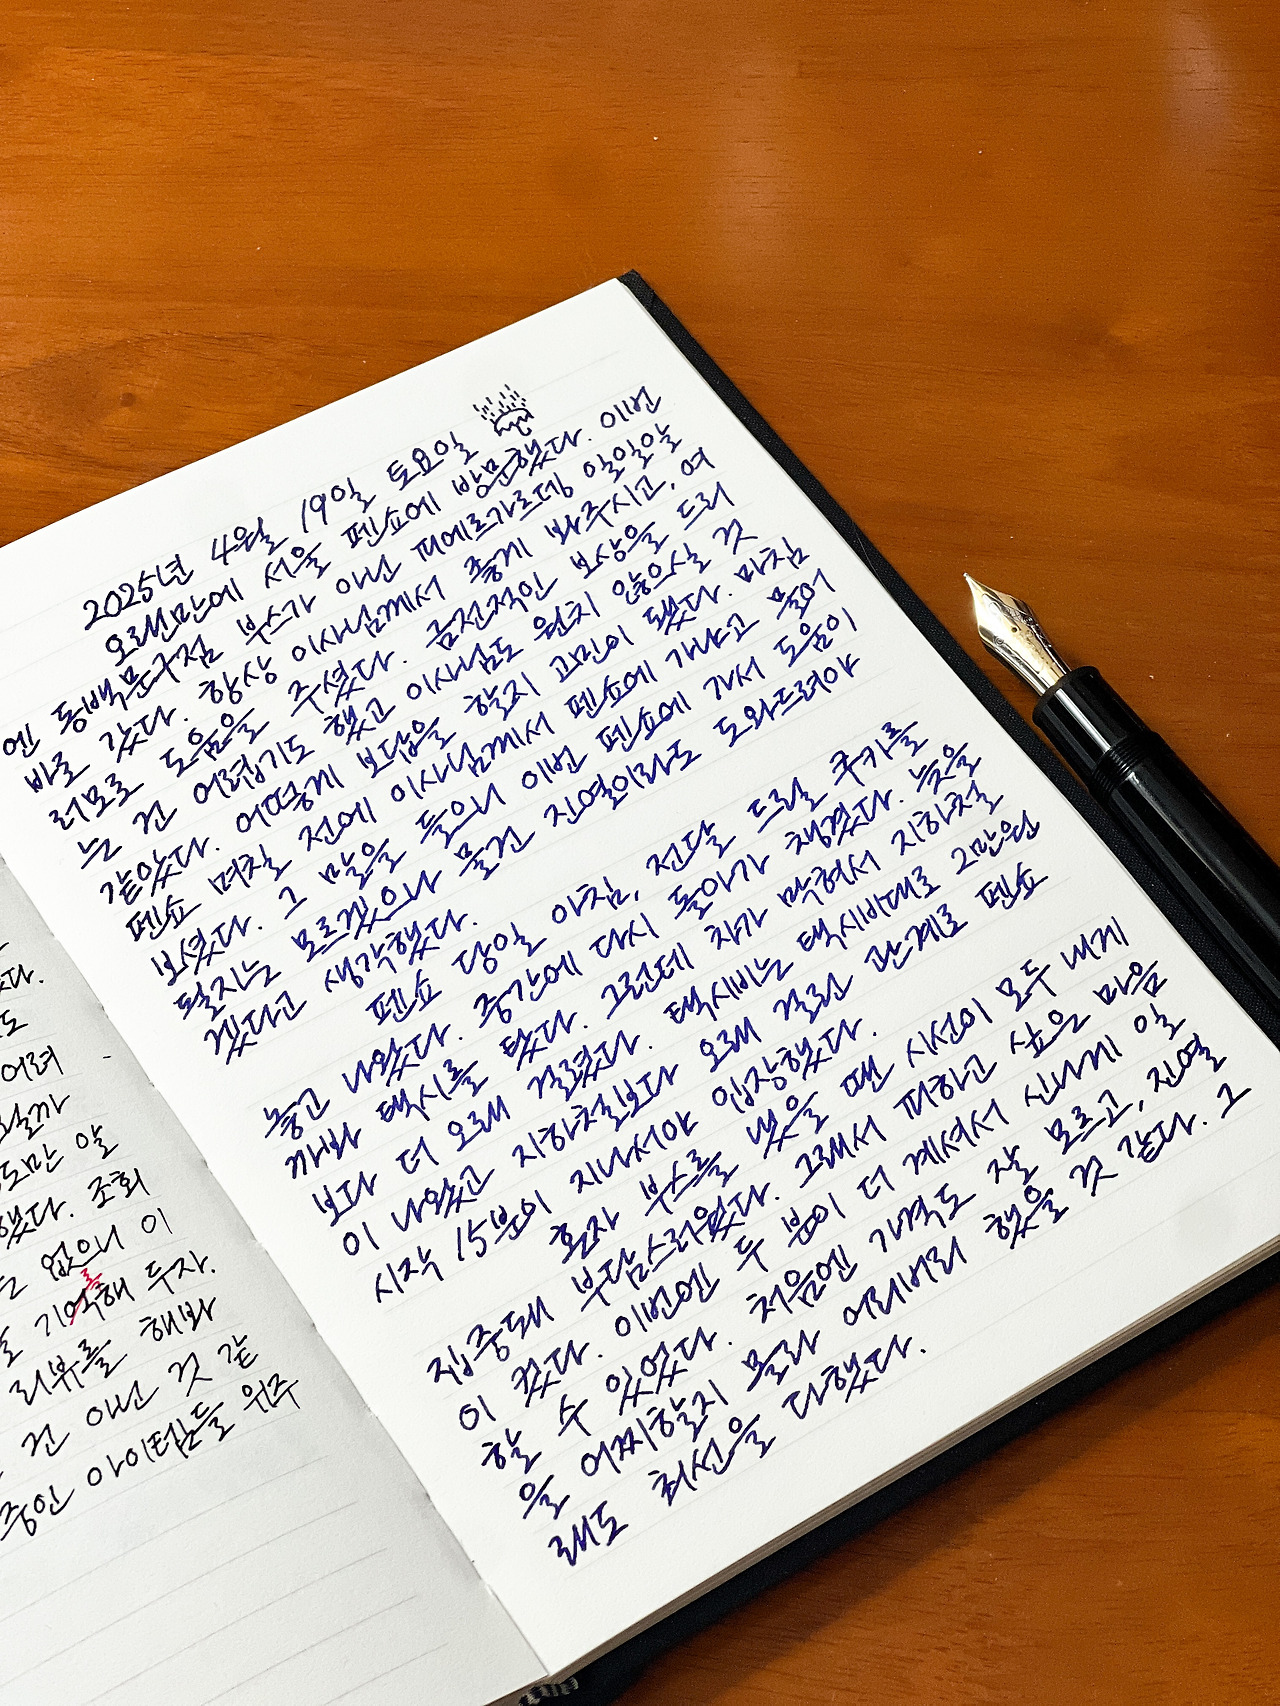 다.
도
어려
도만 알
했다. 조회
없으니 이
해 두자.
리뷰를 해봐
건 아닌 것 같
중인 아이템들 위주
2025년 4월 19일 토요일
오랜만에 서울 펜쇼에 방문했다. 이번
엔 동백문구점 부스가 아닌 피에르가르뎅 일일알
바로 갔다. 항상 이사님께서 좋게 봐주시고, 여
러모로 도움을 주셨다. 금전적인 보상을 드리
는 건 어렵기도 했고 이사님도 원치 않으실 것
같았다. 어떻게 보답을 할지 고민이 됐다. 마침
펜쇼 며칠 전에 이사님께서 펜쇼에 가냐고 물어
보셨다. 그 말을 들으니 이번 펜쇼에 가서 도움이
될지는 모르겠으나 물건 진열이라도 도와드려야
겠다고 생각했다.
펜쇼 당일 아침, 전달 드릴 쿠키를
놓고 나왔다. 중간에 다시 돌아가 챙겼다. 늦을
까봐 택시를 탔다. 그런데 차가 막혀서 지하철
보다 더 오래 걸렸다. 택시비는 택시비대로 2만원
이 나왔고 지하철보다 오래 걸린 관계로 펜쇼
시작 15분이 지나서야 입장했다.
혼자 부스를 냈을 땐 시선이 모두 내게
집중돼 부담스러웠다. 그래서 피하고 싶은 마음
이 컸다. 이번엔 두 분이 더 계셔서 신나게 일
할 수 있었다. 처음엔 가격도 잘 모르고, 진열
을 어찌할지 몰라 어리버리 했을 것 같다. 그
래도 최선을 다했다.